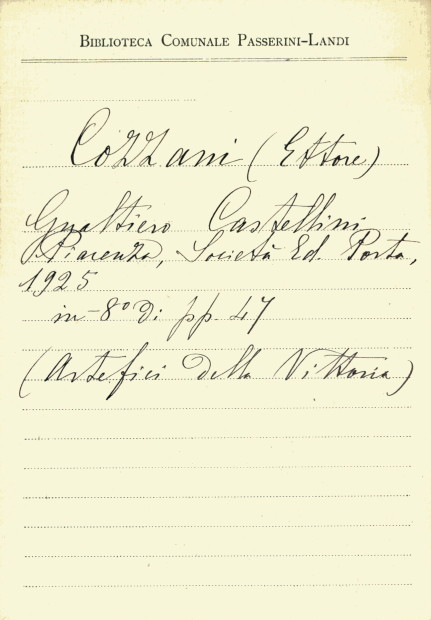 BIBLIOTECA COMUNALE PASSERINI-LANDI
Cozzani (Ettore)
Gualtiero Castellini
Piacenza, Società Ed. Porta,
1925
in-8° di pp. 47
(Artefici della Vittoria)